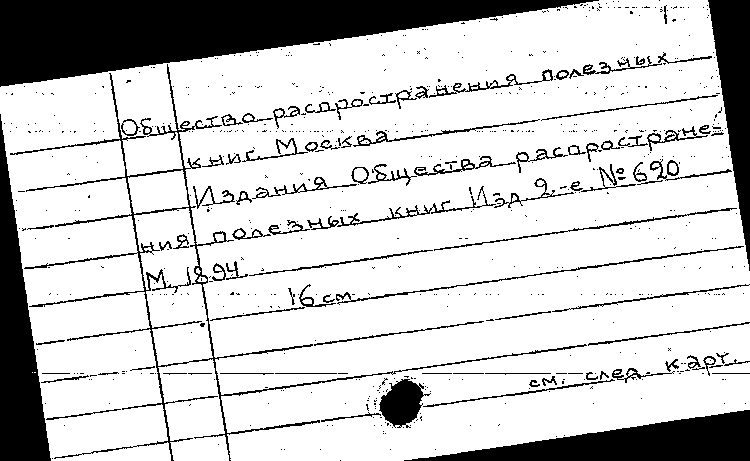 1.
Общество распространения полезных
книг. Москва.
Издания Общества распростране=
ния полезных книг Изд 2.-е. № 620
М., 1894.
16 см.
см. след. карт.